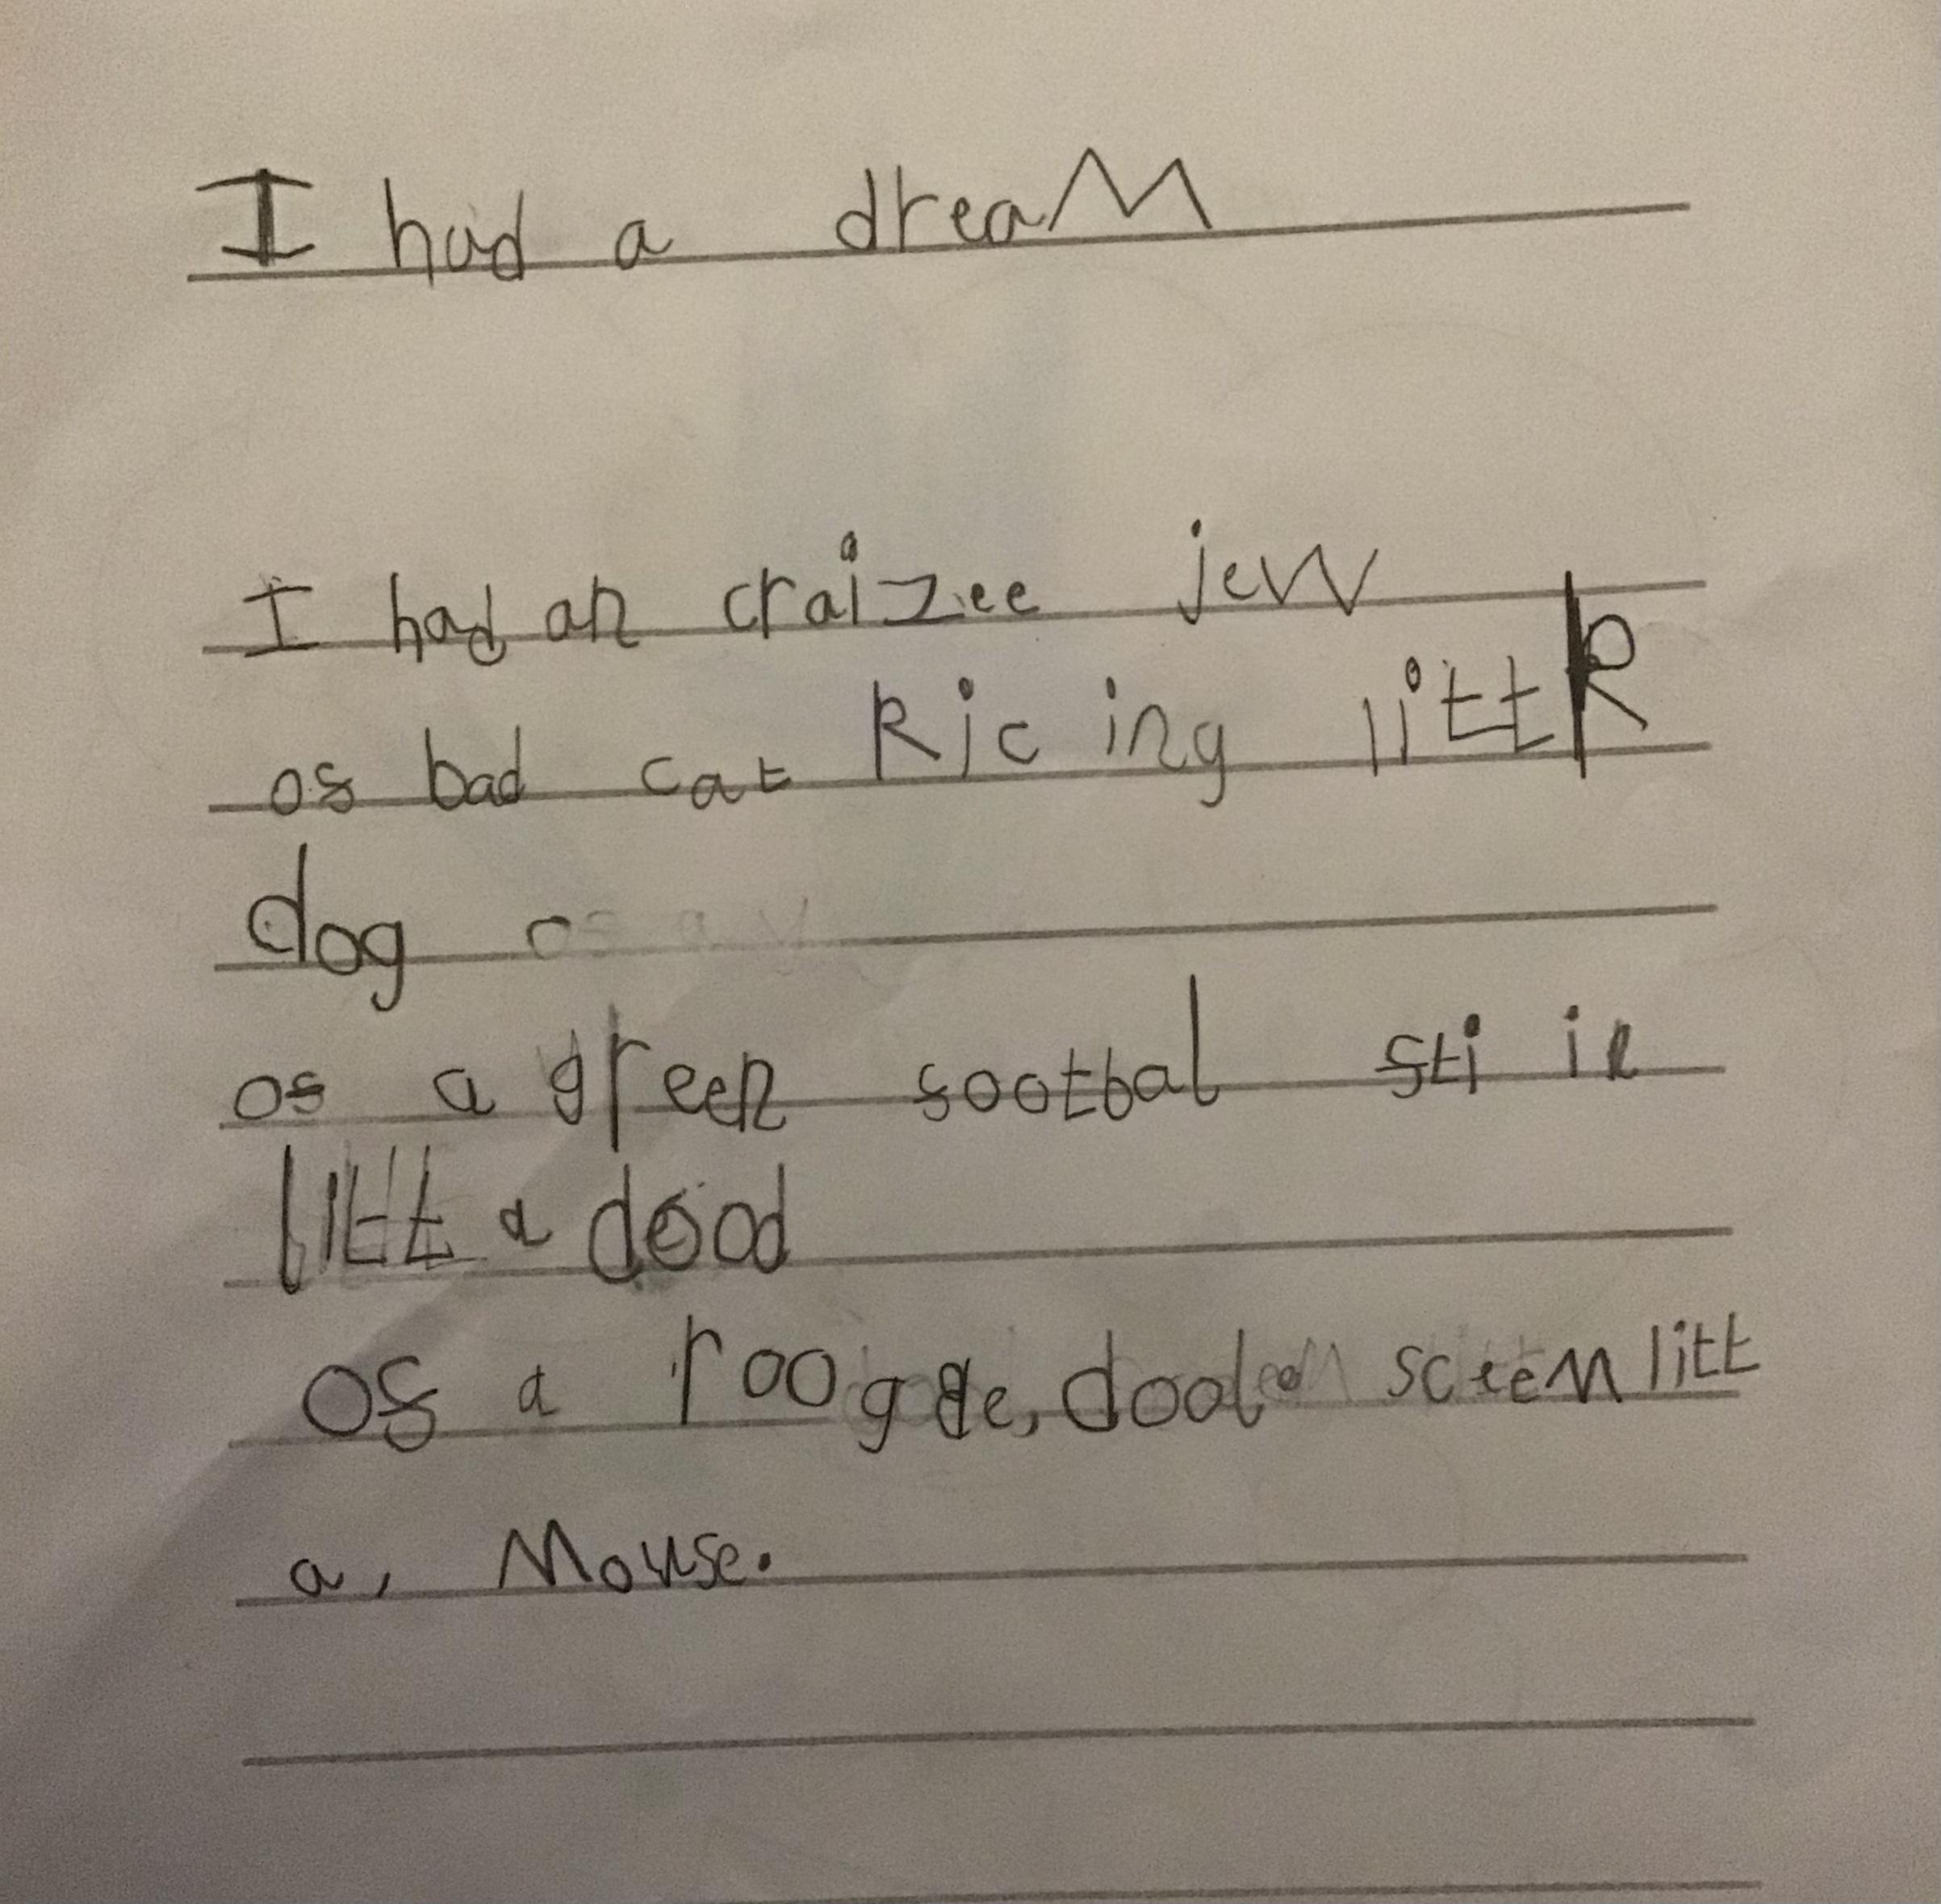 I had a dreaM
I had an craizee jew
os bad cat Ric ing litt R
dog os
os a green sootbal sti il
litt a dood
os a roogge, dool screeM litt
a, Mouse.